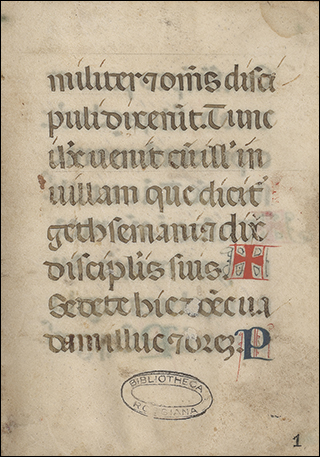 militer ⁊ om̅s disci
puli dixeru̅t. Tunc
ih̅c uenit cu̅ ill' in
uillam que dicit᷑
gethsemani ⁊ dix̅
disciplis suis. ✝
Sedete hic ⁊ o̅e̅c ua
dam illuc ⁊ orez. P
BIBLIOTHECA
1